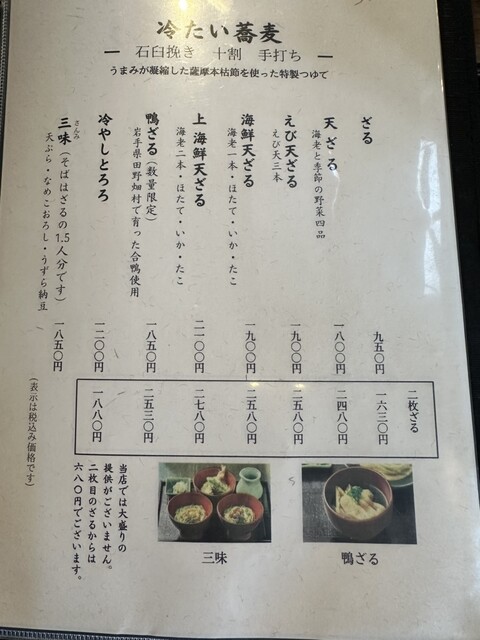 冷たい蕎麦
― 石臼挽き 十割 手打ち ―
うまみが凝縮した薩摩本枯節を使った特製つゆで
ざる
九五〇円
一六三〇円
天ざる
海老と季節の野菜四品
一八〇〇円
二四八〇円
えび天ざる
えび天三本
一九〇〇円
二五八〇円
海鮮天ざる
海老一本・ほたて・いか・たこ
一九〇〇円
二五八〇円
上 海鮮天ざる
海老二本・ほたて・いか・たこ
二一〇〇円
二七八〇円
鴨ざる(数量限定)
岩手県田野畑村で育った合鴨使用
一八五〇円
二五三〇円
冷やしとろろ
一二〇〇円
一八八〇円
三味(そばはざるの1.5人分です)
さんみ
天ぷら・なめこおろし・うずら納豆
一八五〇円
二枚ざる
(表示は税込み価格です)
当店では大盛りの
提供がございません。
二枚目のざるからは
六八〇円でございます。
三味
鴨ざる